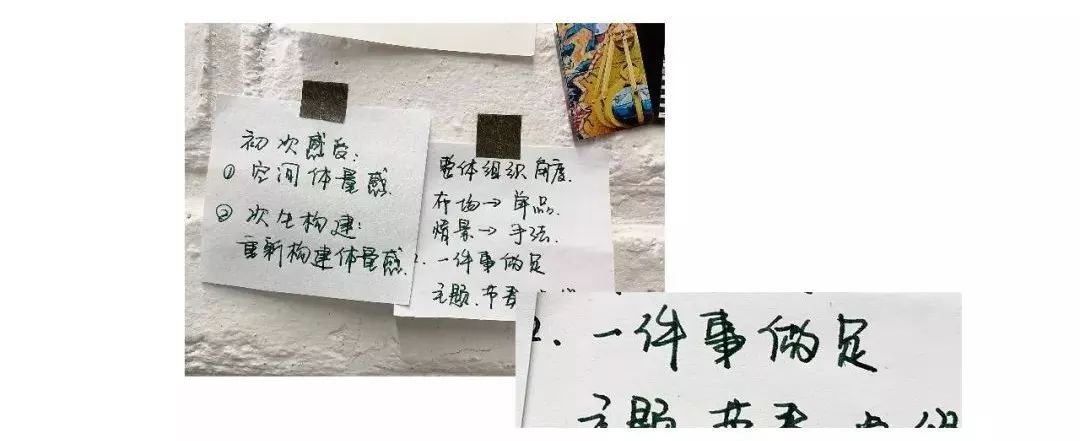 初次感受:
① 空间体量感
② 次生构建:
重新构建体量感.
整体组织角度.
布场→单品.
情景→手法.
2. 一件事做足
主题.节奏
2. 一件事做足
主题.节奏